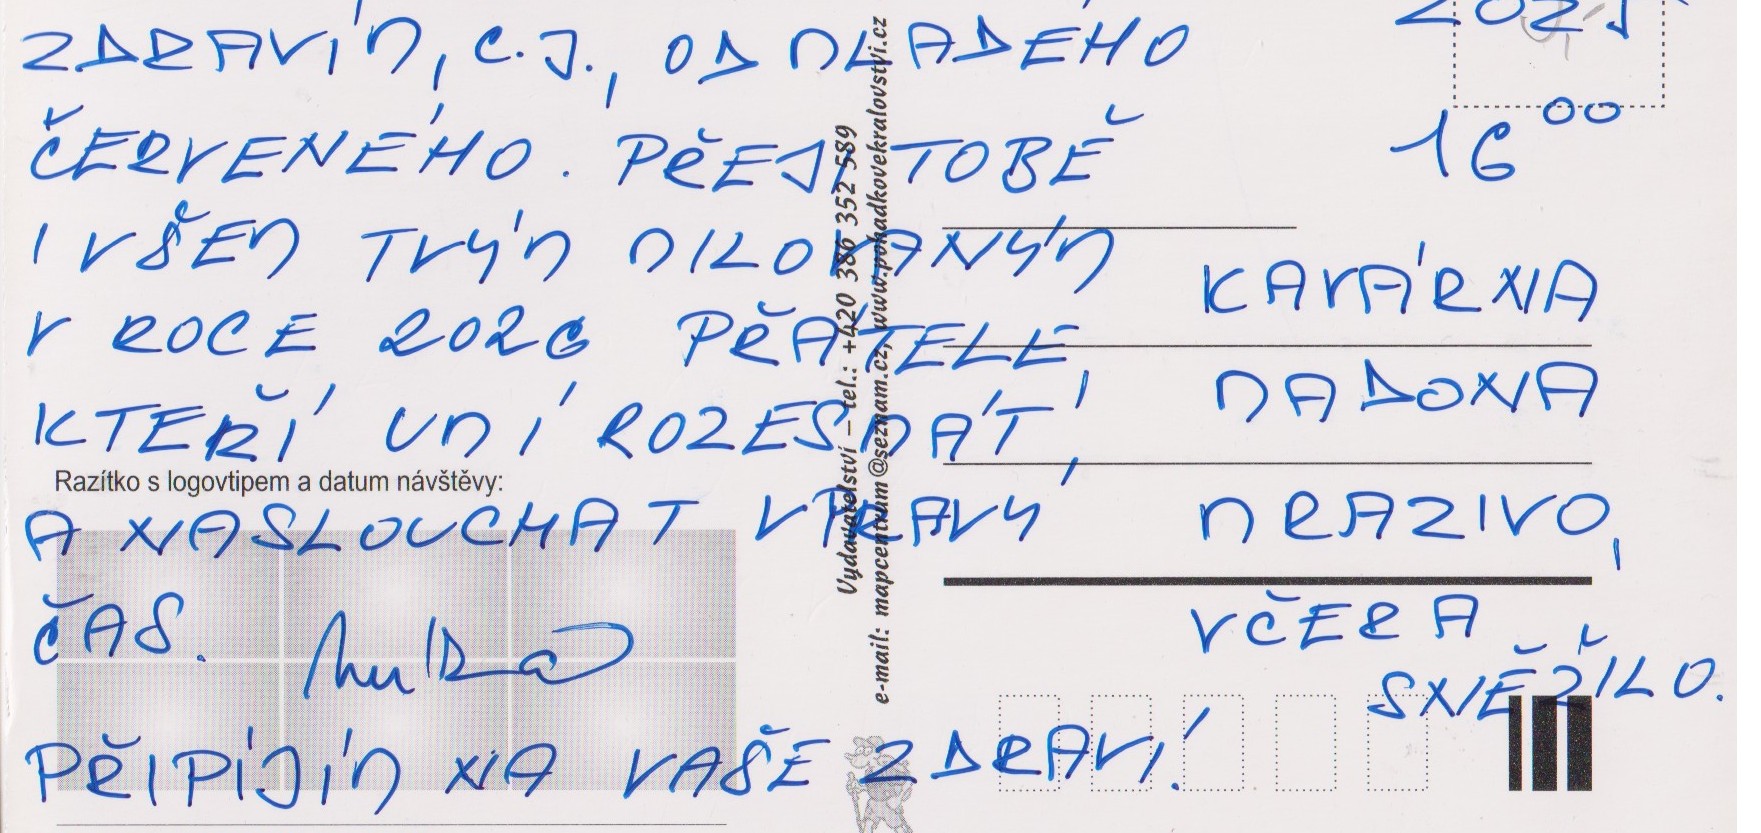 ZDRAVÍM, C.J., OD MLADÉHO
ČERVENÉHO. PŘEJI TOBĚ
I VŠEM TVÝM MILOVANÝM
V ROCE 2026 PŘÁTELE,
KTEŘÍ UMÍ ROZESMÁT,
Razítko s logovtipem a datum návštěvy:
A NASLOUCHAT V PRAVÝ
ČAS.
PŘIPÍJÍM NA VAŠE ZDRAVÍ!
Vydavatelství – tel.: +420 386 352 589
e-mail: mapcentrum@seznam.cz, www.pohadkovekralovstvi.cz
2025
16 00
KAVÁRNA
MADONA
MRAZIVO,
VČERA
SNĚŽILO.